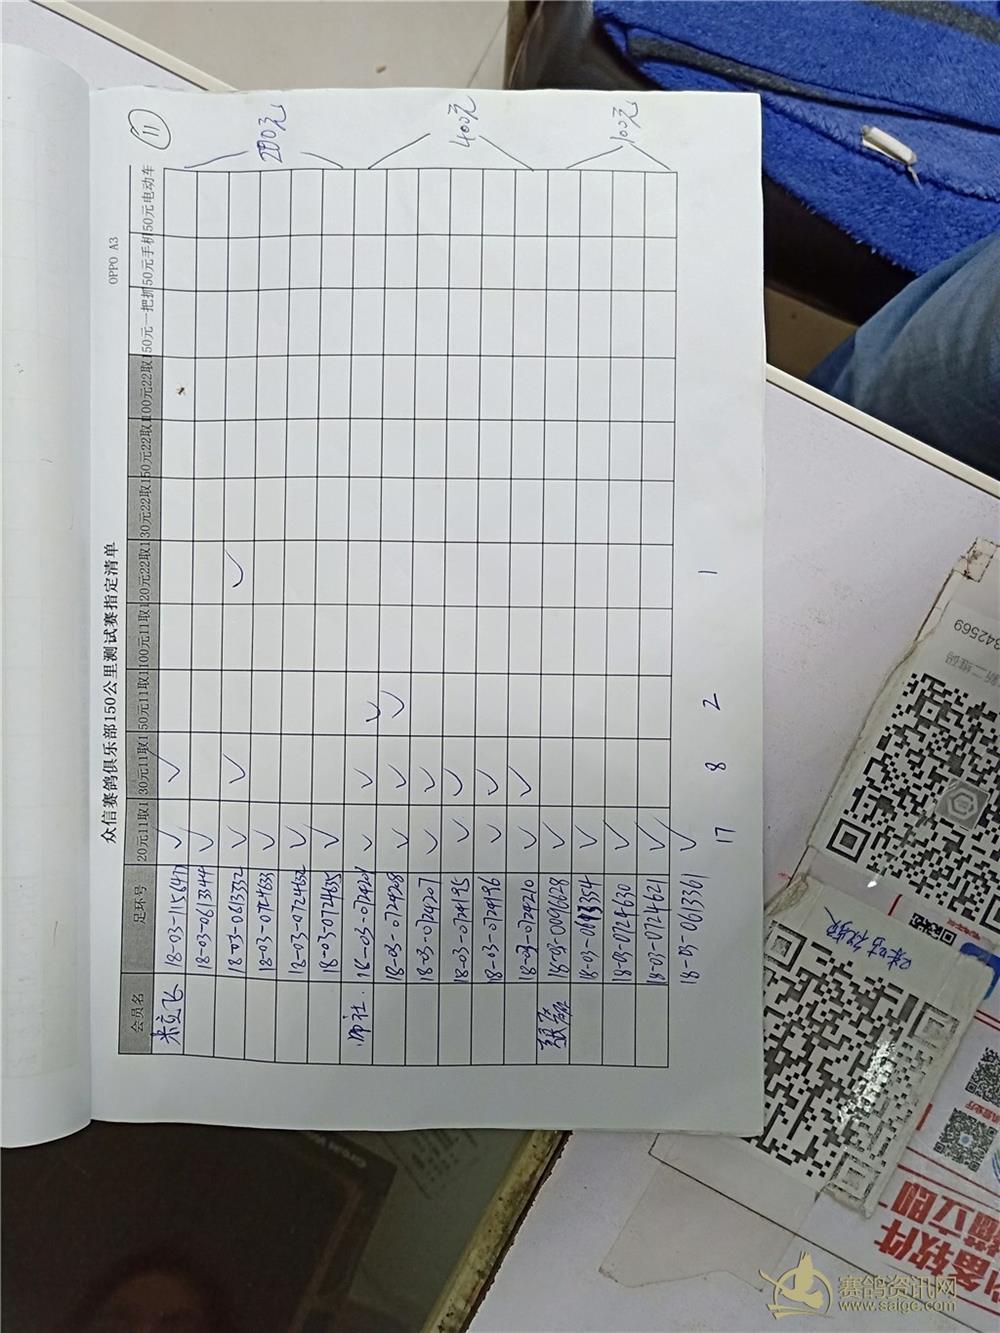 11
OPPO A3
众信赛鸽俱乐部150公里测试赛指定清单
会员名 足环号 20元11取1 30元11取1 50元11取1 100元11取1 20元22取1 30元22取1 50元22取1 100元22取1 50元一把抓 50元手机 50元电动车
18-03-115647 ✓ ✓
18-03-0613344 ✓
18-03-0613352 ✓ ✓ ✓
18-03-0724633 ✓
18-03-0724632 ✓
18-03-0724635 ✓
200元
18-03-0729201 ✓ ✓ ✓
18-03-0729208 ✓ ✓ ✓
18-03-0729207 ✓ ✓
18-03-0729195 ✓ ✓
18-03-0729196 ✓ ✓
18-03-0729210 ✓ ✓
400元
18-03-0096628 ✓
✓
18-03-0724630 ✓
18-03-0724621 ✓
18-03-0613361 ✓
100元
17 8 2 1
342569
新二维码
备软件
立即
赛鸽资讯网
www.saige.com